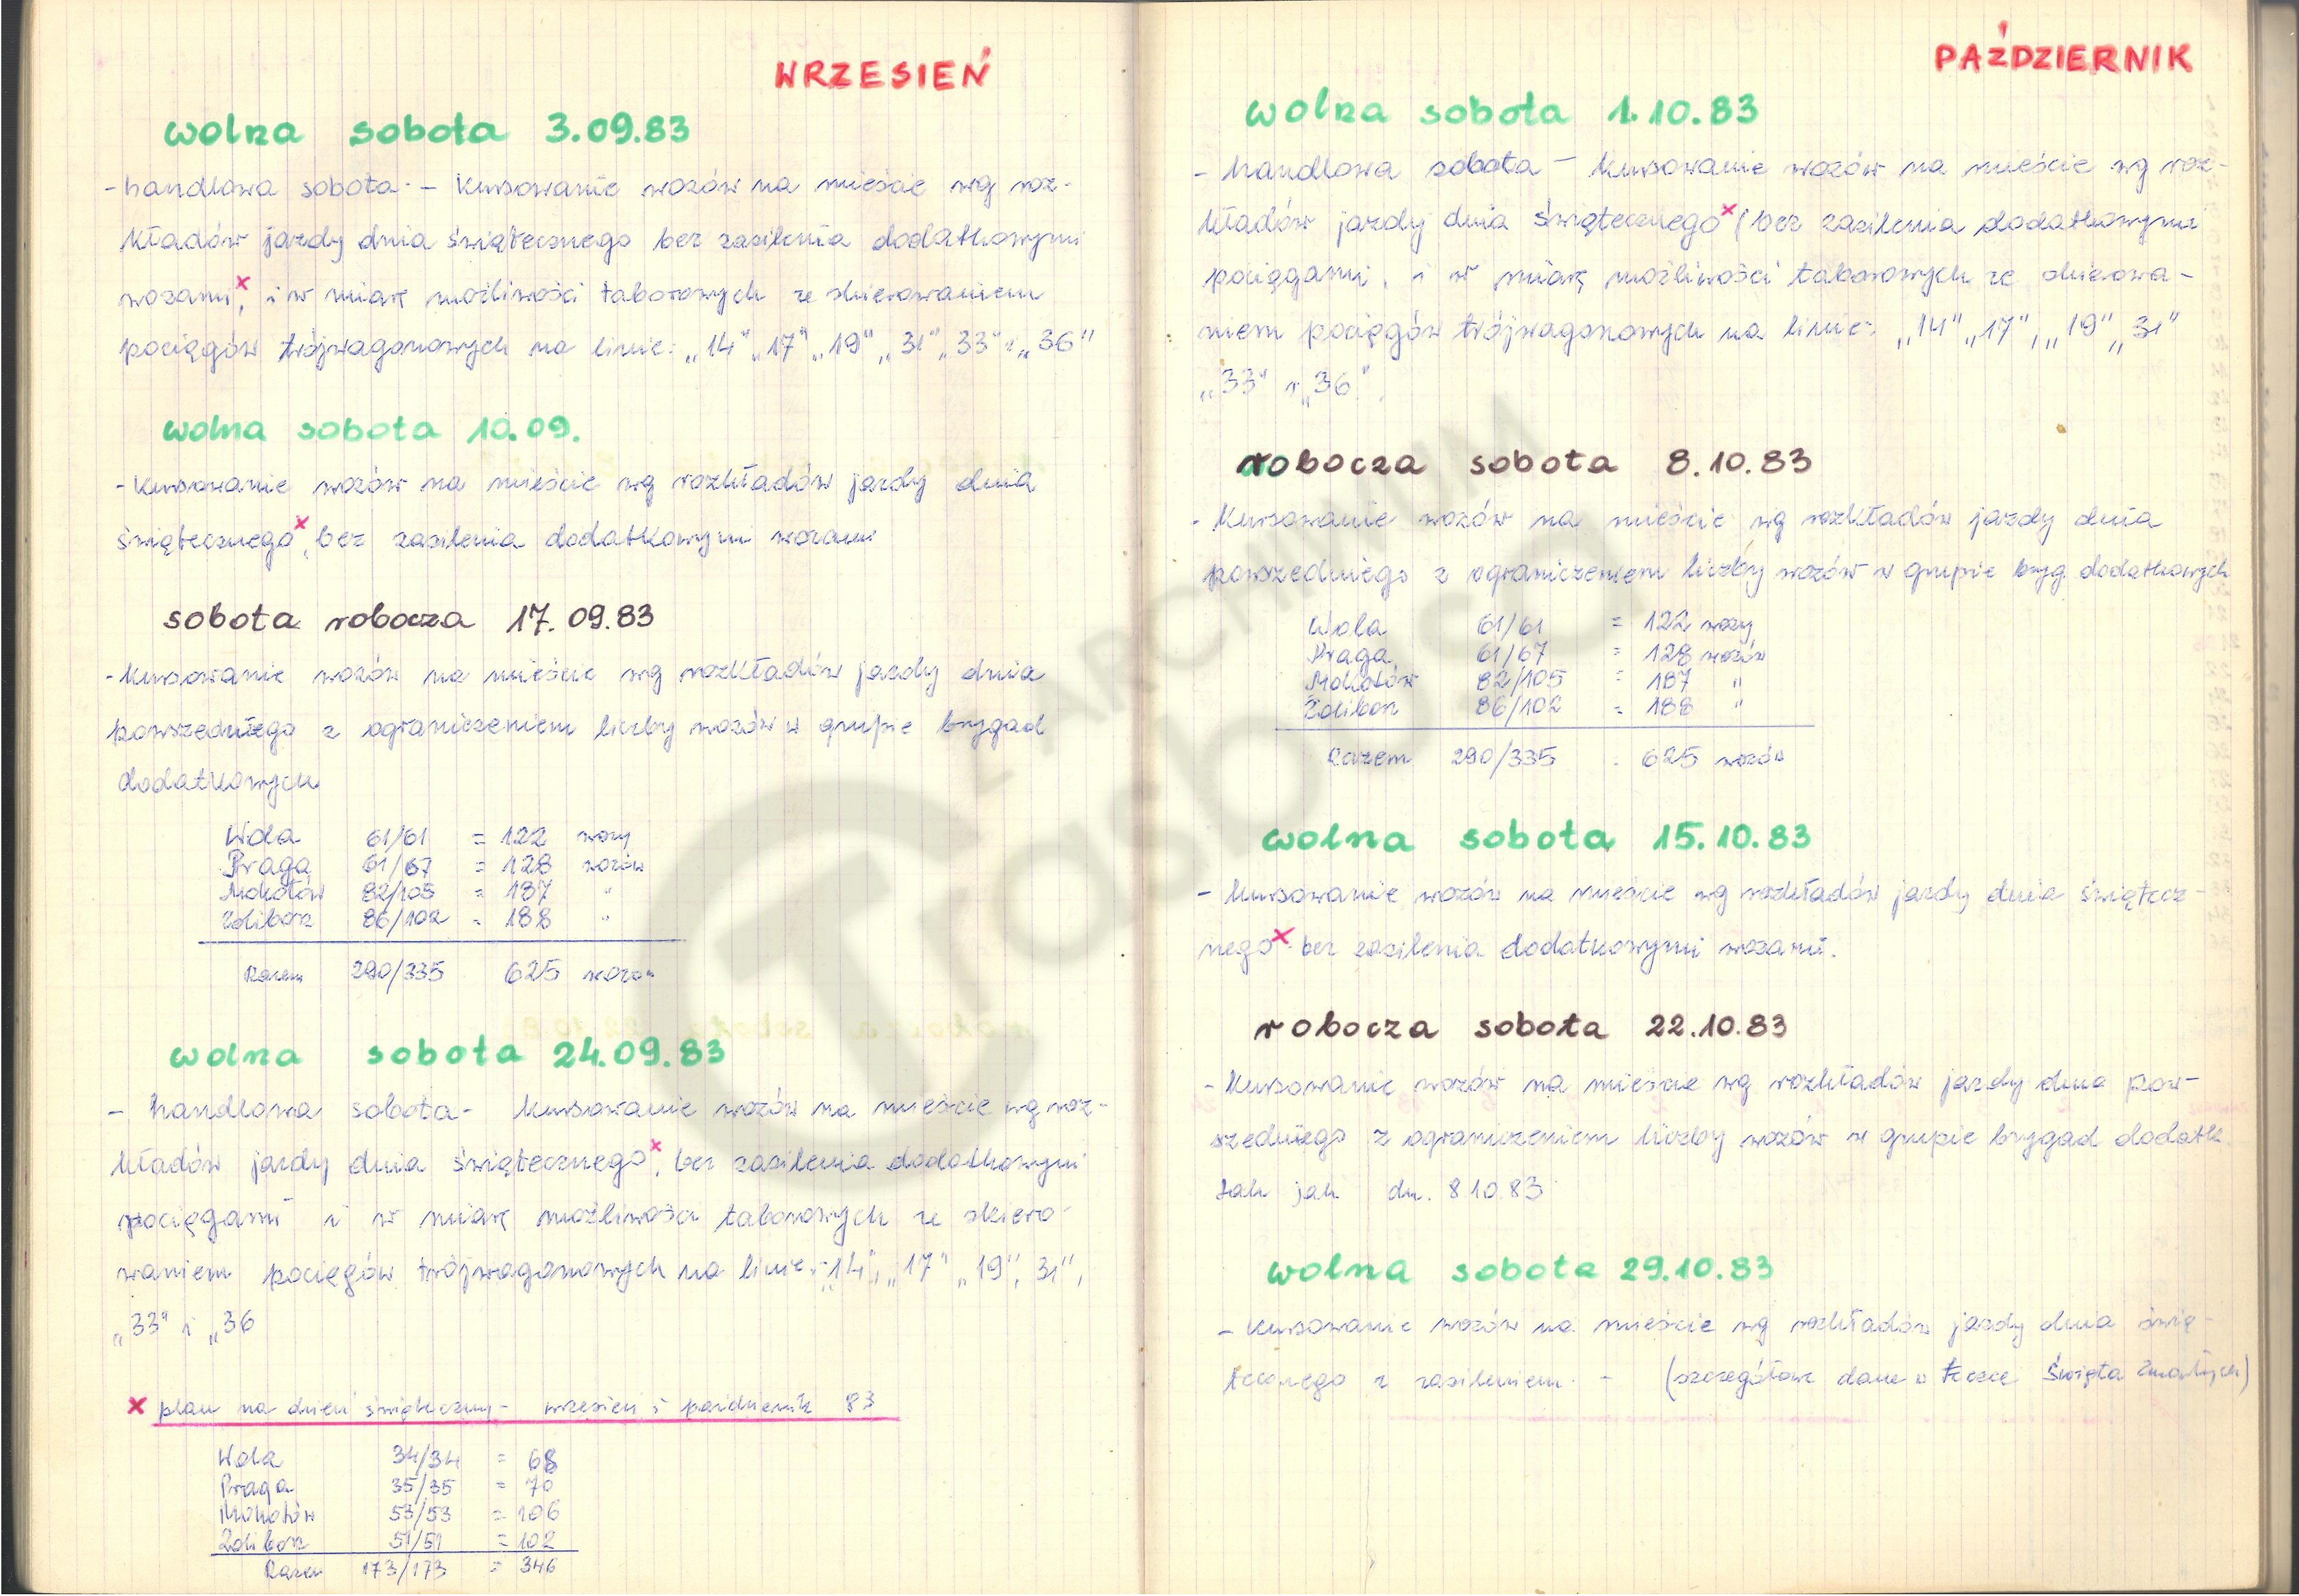 WRZESIEŃ
wolna sobota 3.09.83
- handlowa sobota - kursowanie wozów na mieście wg roz-
kładów jazdy dnia świątecznego bez zasilenia dodatkowymi
wozami x, i w miarę możliwości taborowych ze skierowaniem
pociągów trójwagonowych na linie: „14" „17" „19" „31" „33" i „36"
wolna sobota 10.09.
- kursowanie wozów na mieście wg rozkładów jazdy dnia
świątecznego x, bez zasilenia dodatkowym wozami
sobota robocza 17.09.83
- kursowanie wozów na mieście wg rozkładów jazdy dnia
powszedniego z ograniczeniem liczby wozów w grupie brygad
dodatkowych
Wola 61/61 = 122 wozy
Praga 61/67 = 128 wozów
Mokotów 82/105 = 187 "
Żoliborz 86/102 = 188 "
Razem 290/335 625 wozów
wolna sobota 24.09.83
- handlowa sobota - kursowanie wozów na mieście wg roz-
kładów jazdy dnia świątecznego x, bez zasilenia dodatkowymi
pociągami i w miarę możliwości taborowych ze skiero-
waniem pociągów trójwagonowych na linie: „14", „17" „19", 31",
„33" i „36
x plan na dzień świąteczny - wrzesień i październik 83
Wola 34/34 = 68
Praga 35/35 = 70
Mokotów 53/53 = 106
Żoliborz 51/51 = 102
Razem 173/173 = 346
PAŹDZIERNIK
wolna sobota 1.10.83
- handlowa sobota - kursowanie wozów na mieście wg roz-
kładów jazdy dnia świątecznego x (bez zasilenia dodatkowymi
pociągami, i w miarę możliwości taborowych ze skierowa-
niem pociągów trójwagonowych na linie: „14" „17", „19" „31"
„33" i „36"
robocza sobota 8.10.83
- kursowanie wozów na mieście wg rozkładów jazdy dnia
powszedniego z ograniczeniem liczby wozów w grupie bryg. dodatkowych
Wola 61/61 = 122 wozy
Praga 61/67 = 128 wozów
Mokotów 82/105 = 187 "
Żoliborz 86/102 = 188 "
Razem 290/335 = 625 wozów
wolna sobota 15.10.83
- kursowanie wozów na mieście wg rozkładów jazdy dnia świątecz-
nego x bez zasilenia dodatkowymi wozami.
robocza sobota 22.10.83
- kursowanie wozów na mieście wg rozkładów jazdy dnia pow-
szedniego z ograniczeniem liczby wozów w grupie brygad dodatk.
tak jak dn. 8.10.83
wolna sobota 29.10.83
- kursowanie wozów na mieście wg rozkładów jazdy dnia świą-
tecznego z zasileniem. - (szczegółowe dane w teczce Święta Zmarłych)
ARCHIWUM